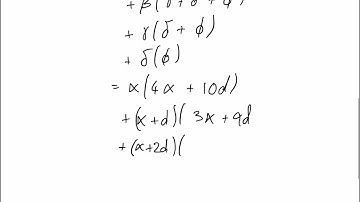 + β(γ+δ+ϕ)
+ γ(δ+ϕ)
+ δ(ϕ)
= α(4α + 10d)
+(α+d)( 3α+9d
+(α+2d)(